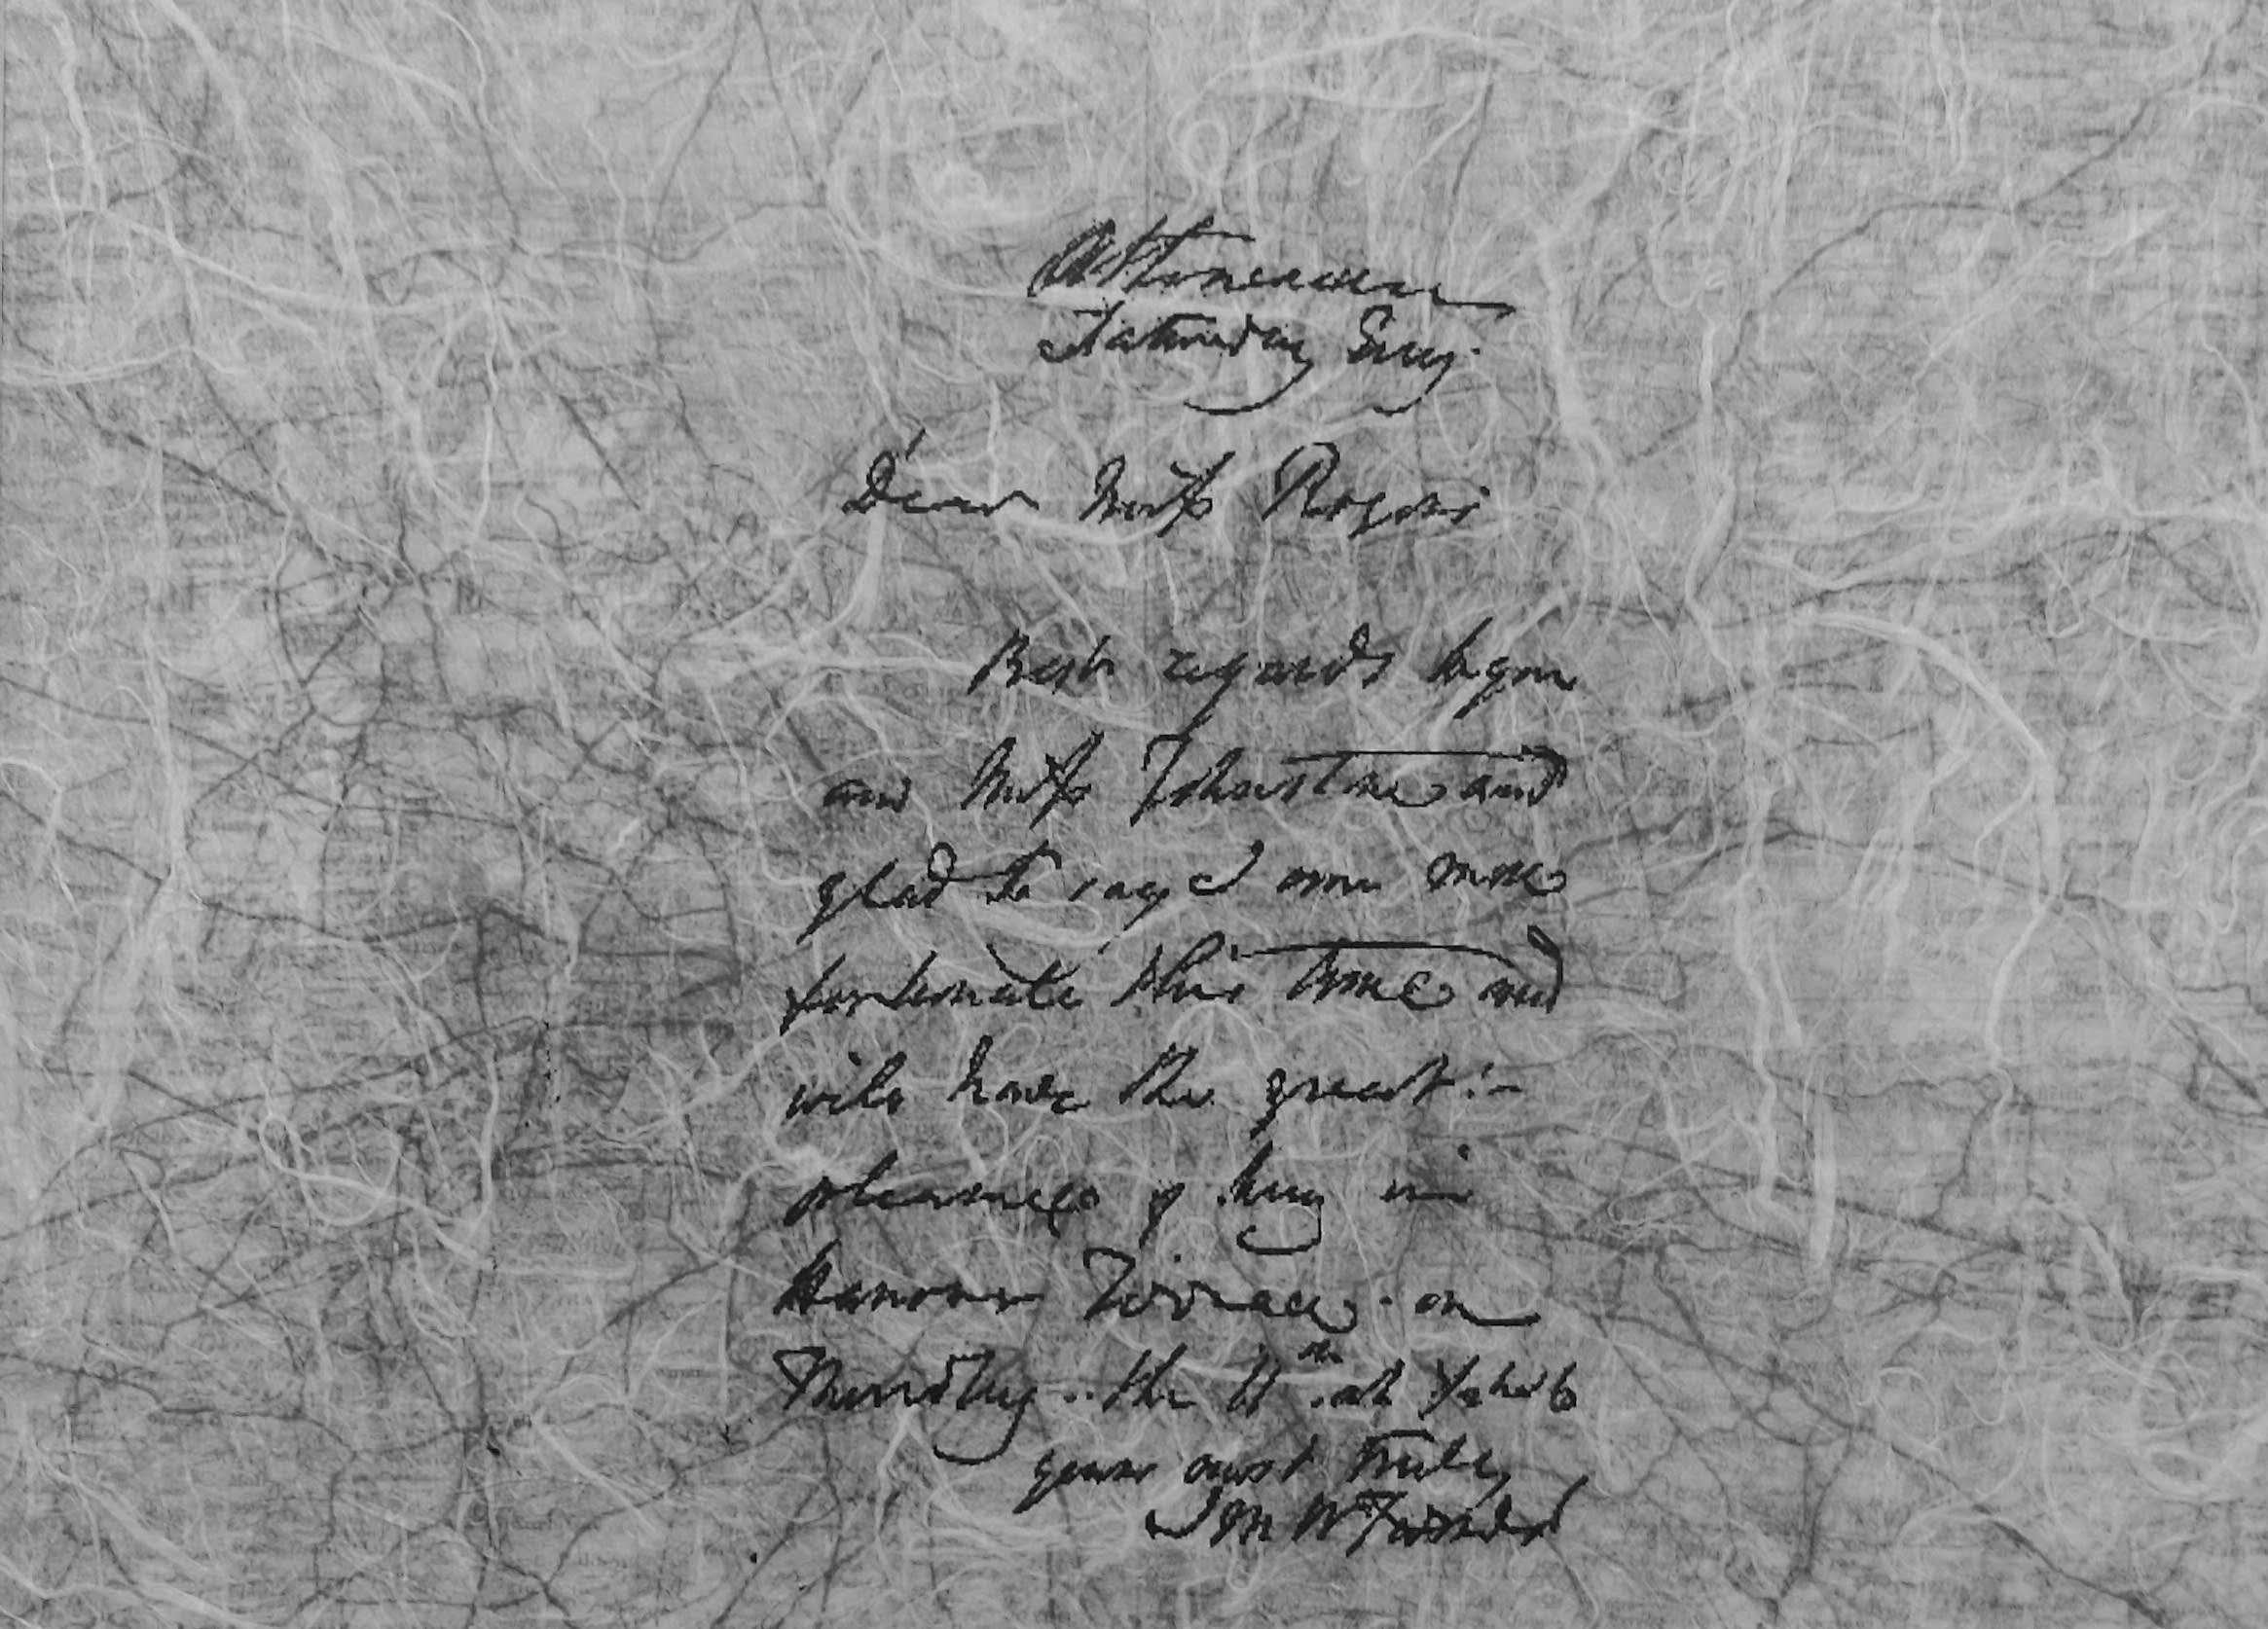 Athenaeum
Saturday Eveg.
Dear Miss Rogers
Best regards to you
and Miss Johnstone and
glad to say I am more
fortunate this time and
will have the great:-
pleasure of being in
Hanover Terrace - on
Thursday .. the 11th at
yours most truly
J M W Turner